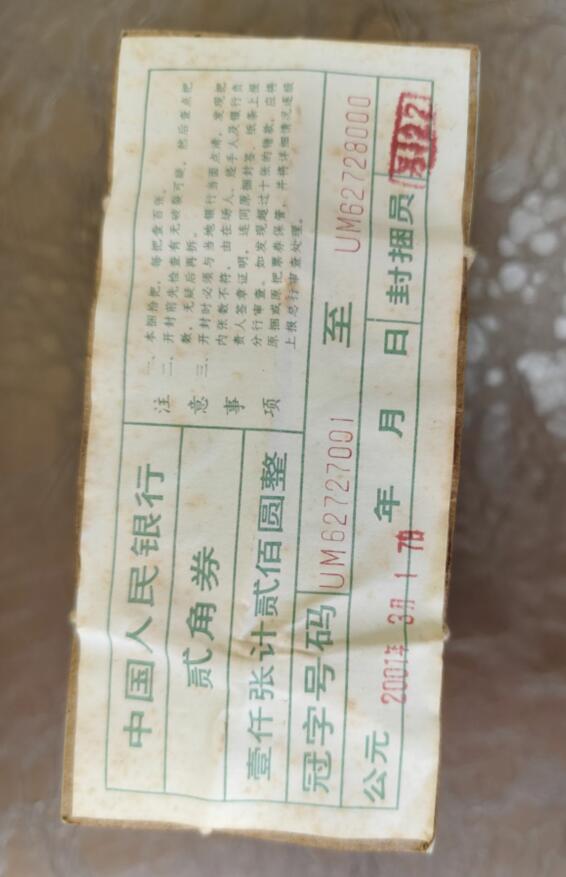 中国人民银行
贰角券
壹仟张计贰佰圆整
注意事项
一、本捆拾把，每把壹百张。
二、开封前先检查有无破裂可疑，然后查点把
数，无疑后再拆。
三、开封时必须与当地银行当面点清，发现把
内张数不符，由在场人、经手人及银行负
责人签章证明，连同原捆封签、纸条上报
分行审查。如发现超过十张的错款，应将
原捆或原把票券保管，并将详细情况逐级
上报总行审查处理。
冠字号码 UM62727001 至 UM62728000
公元 2001年 3月 1 7日 年 月 日 封捆员